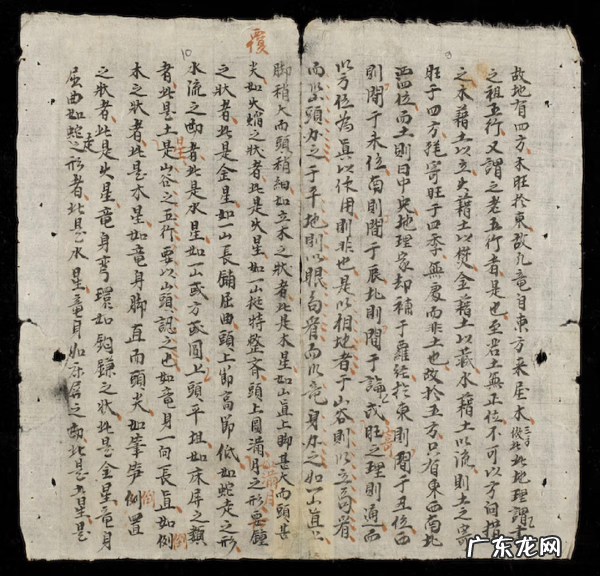 故地有四方木旺於東故凡竜自東方來屋水此地理謂
之祖五行又謂之老五行者是也至若土無正位不可以方向指
之木藉土以立火藉土以㷊金藉土以藏水藉土以流則土之
旺于四方絁寄旺于四季無處而非土也故於五方只有東西南北
四位而土則曰中央地理家却補于羅經於東則間于丑位西
則間于未位南則間于辰北則間于戌旺之理則通而
以方位為眞以作用則非也是以相地者于山谷則以立局看
而以山頭加之于平地則以眼局看而以竜身加之如一山直上
覆
脚稍大而頭稍細如立木之狀者此是木星如山直上脚甚大而頭甚
尖如火焰之狀者此是火星如一山挺特整齊頭上圓滿月之形覆鍾
之狀者此是金星如一山長鋪屈曲頭上節高節低如蛇走之形
水流之動者此是水星如一山或方或圓上頭平坦如床屏之類
者此是土星是山谷之五行要以山頭認之也如竜身一向長直如倒
木之狀者此是木星如竜身脚直而頭尖如筆笋倒置
之狀者此是火星竜身彎環如鈎鎌之狀此是金星竜身
屈曲如蛇走之形者此是水星竜身如床屏之動此是土星是
10
9
广东龙网
GDLONG.COM